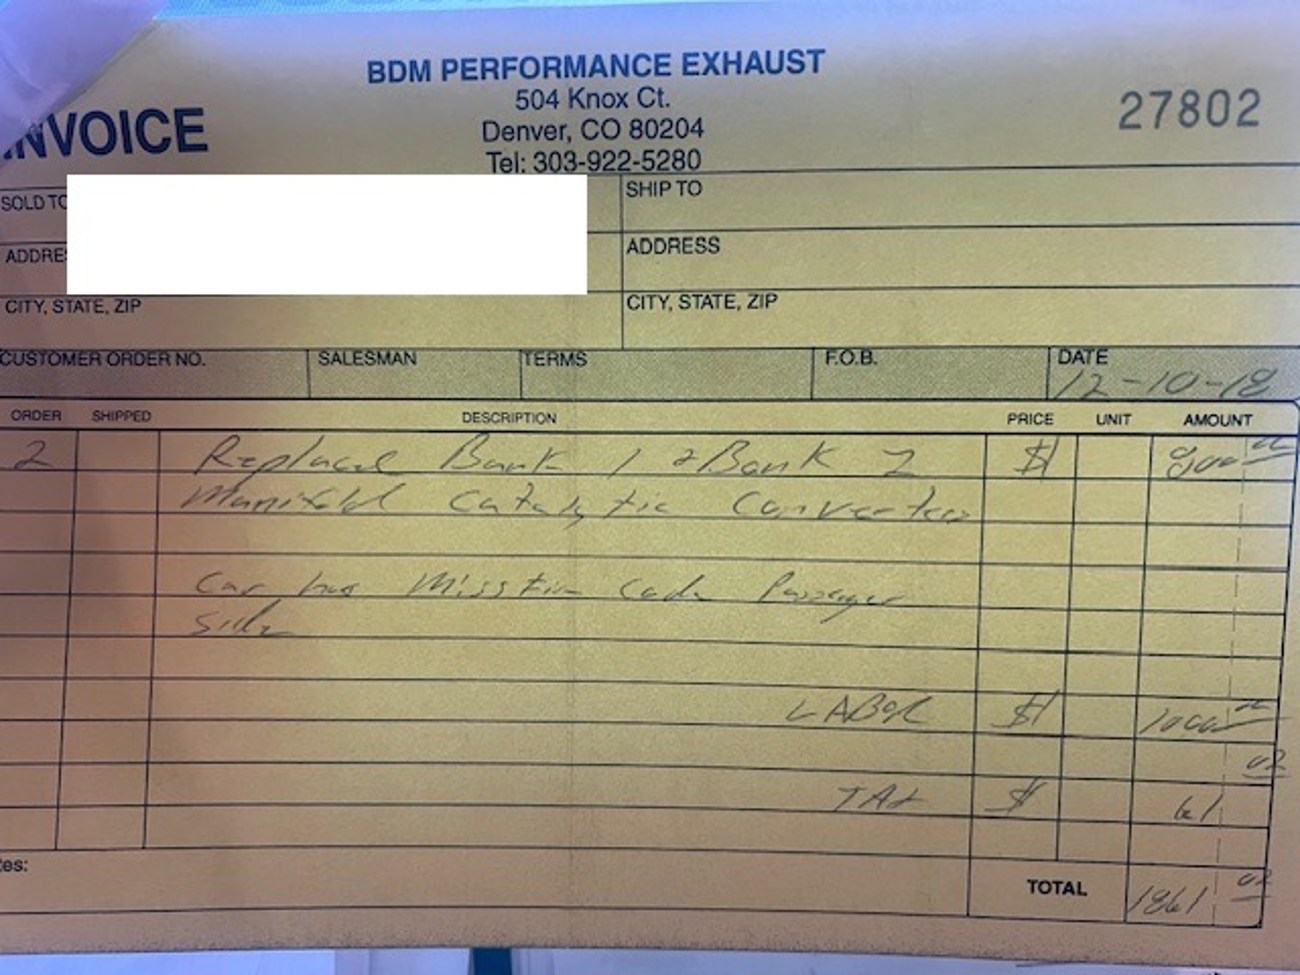 INVOICE
BDM PERFORMANCE EXHAUST
504 Knox Ct.
Denver, CO 80204
Tel: 303-922-5280
27802
SOLD TO
SHIP TO
ADDRE
ADDRESS
CITY, STATE, ZIP
CITY, STATE, ZIP
CUSTOMER ORDER NO. SALESMAN TERMS F.O.B. DATE
12-10-18
ORDER SHIPPED DESCRIPTION PRICE UNIT AMOUNT
2 Replaced Bank 1 & Bank 2 $ 800 00
Manifold Catalytic Converters
Car has Missfire Code Passenger
Side
LABOR $ 1000 00
TAX $ 61 02
tes:
TOTAL 1861 02